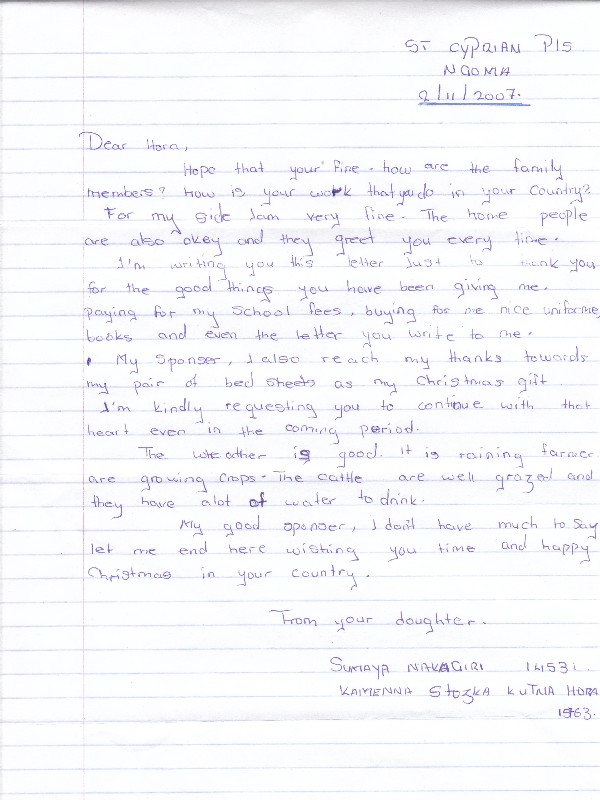 ST CYPRIAN P/S
NGOMA
2/11/2007.
Dear Hora,
Hope that your fine. how are the family
members? How is your work that you do in your Country?
For my side Iam very fine. The home people
are also okey and they greet you every time.
I'm writing you this letter Just to thank you
for the good things you have been giving me.
paying for my School fees, buying for me nice uniforms,
books and even the letter you write to me.
My Sponser, I also reach my thanks towards
my pair of bed sheets as my Christmas gift.
I'm kindly requesting you to continue with that
heart even in the coming period.
The wheather is good. It is raining farmer
are growing crops. The cattle are well grazed and
they have alot of water to drink.
My good sponser, I don't have much to say
let me end here wishing you time and happy
Christmas in your country.
From your doughter.
SUMAYA NAKAGIRI 14531.
KAMENNA Stozka KUTNA HORA
1563.